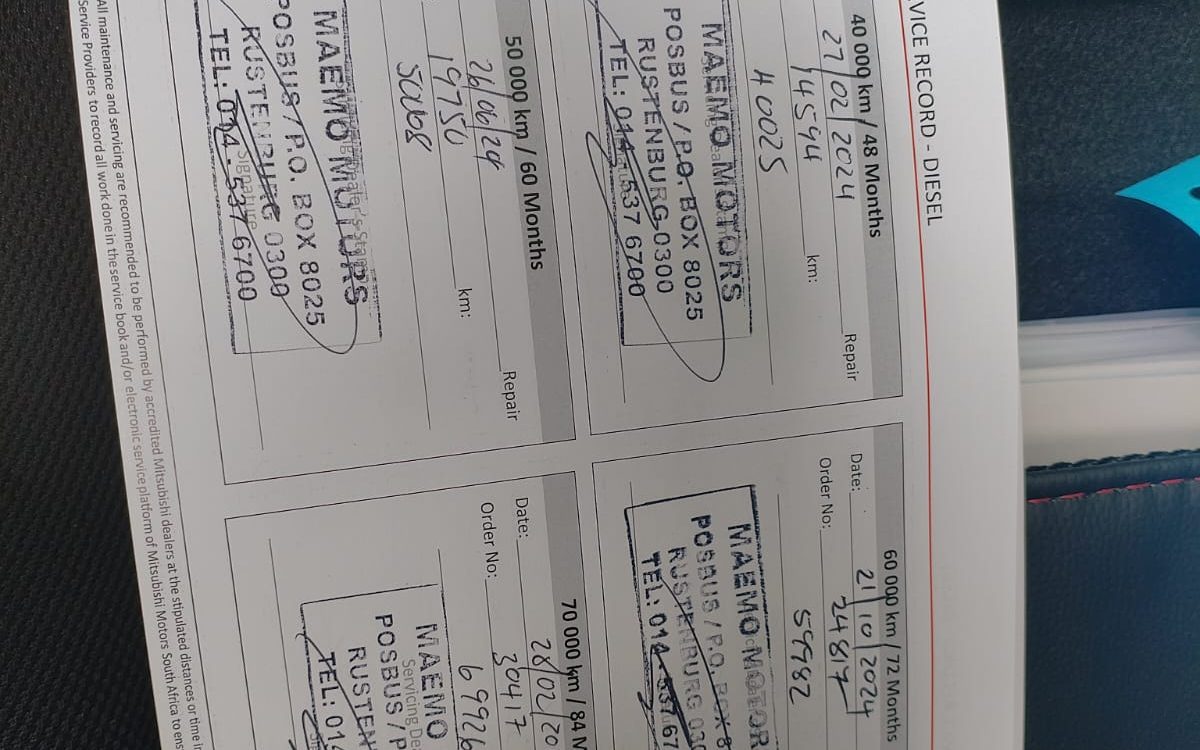 VICE RECORD - DIESEL
40 000 km / 48 Months
27/02/2024
Repair
14594
km:
40025
MAEMO MOTORS
POSBUS / P.O. BOX 8025
RUSTENBURG 0300
TEL: 014 - 537 6700
50 000 km / 60 Months
26/06/24
Repair
19750
km:
50068
Dealer's Stamp
MAEMO MOTORS
POSBUS / P.O. BOX 8025
RUSTENBURG 0300
Signature
TEL: 014 - 537 6700
60 000 km / 72 Months
Date: 21/10/2024
Order No: 24817
59982
MAEMO MOTOR
POSBUS / P.O. BOX 8
RUSTENBURG 030
TEL: 014 - 537 67
70 000 km / 84 M
Date: 28/02/20
Order No: 30417
69926
Servicing De
MAEMO
POSBUS / P
RUSTEN
TEL: 014
All maintenance and servicing are recommended to be performed by accredited Mitsubishi dealers at the stipulated distances or time in
Service Providers to record all work done in the service book and/or electronic service platform of Mitsubishi Motors South Africa to ens